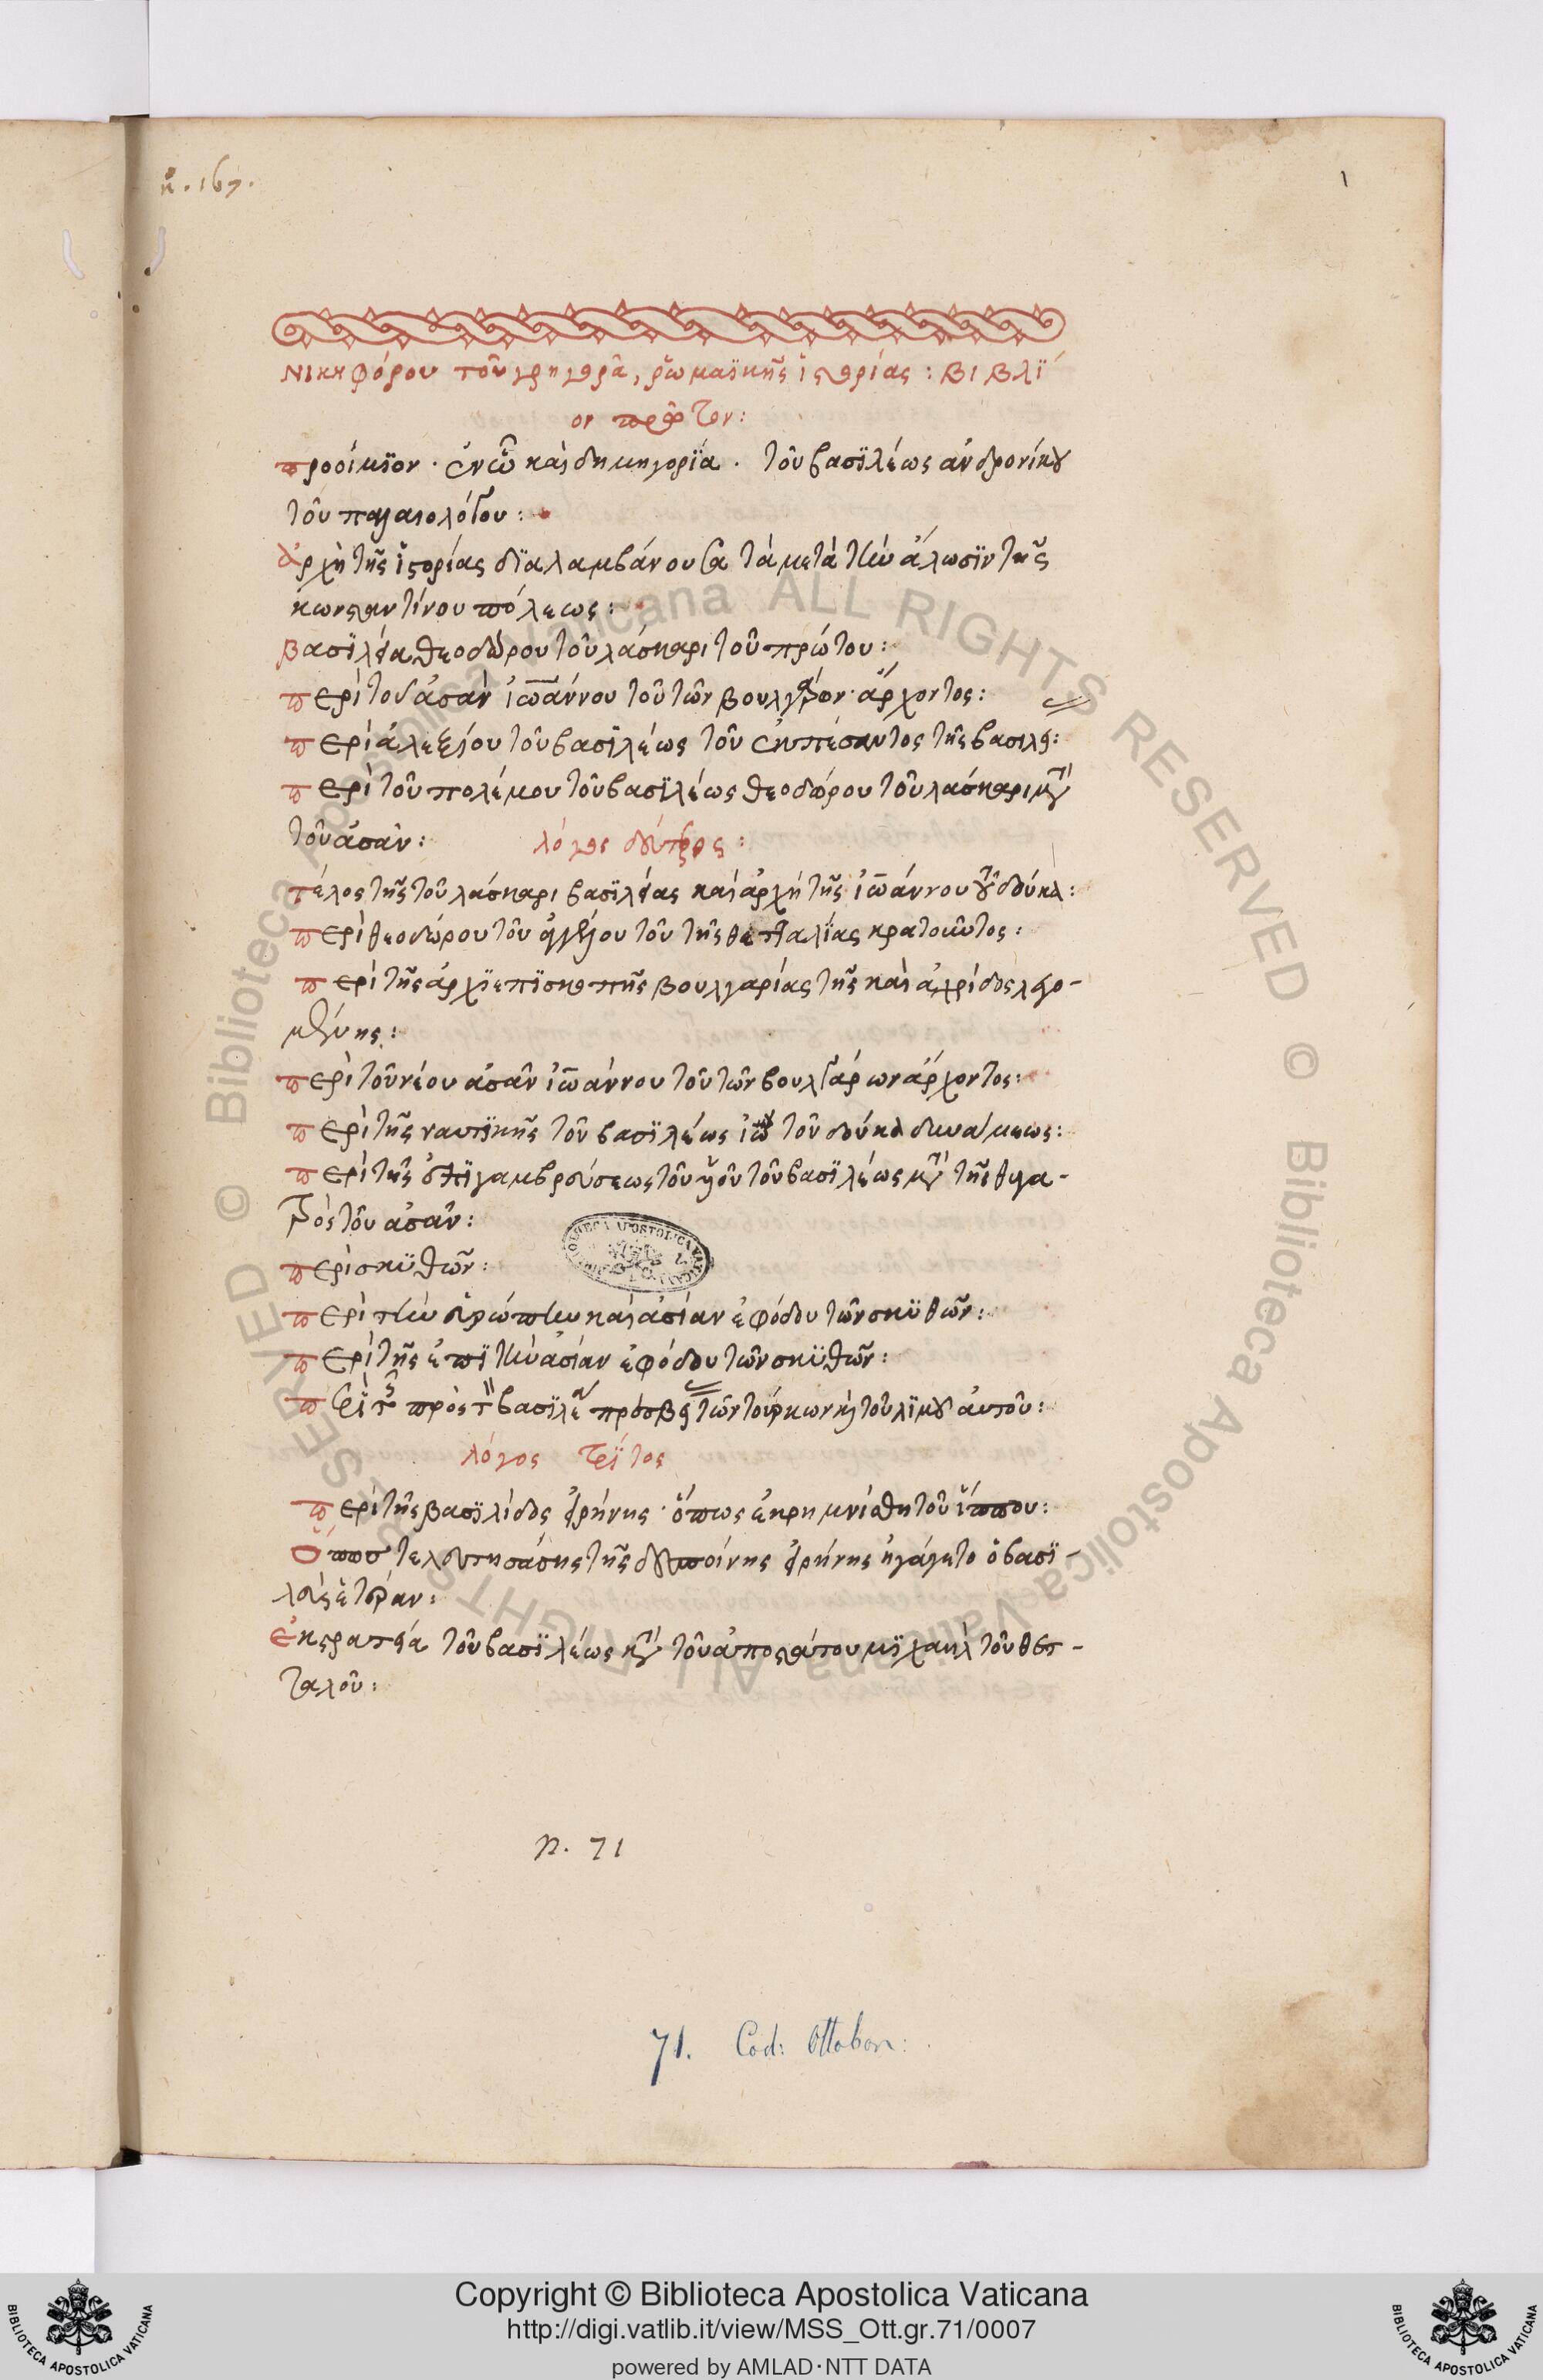 n. 167.
1
Νικηφόρου τοῦ γρηγορᾶ, ῥωμαϊκῆς ἱστορίας : βιβλί
ον πρῶτον :
προοίμιον · ἐν ὧ καὶ δημηγορία · τοῦ βασιλέως ἀνδρονίκου
τοῦ παλαιολόγου :
ἀρχὴ τῆς ἱστορίας διαλαμβάνουσα τὰ μετὰ τὴν ἅλωσιν τῆς
κωνσταντίνου πόλεως :
βασιλεία θεοδώρου τοῦ λάσκαρι τοῦ πρώτου :
περὶ τοῦ ἀσὰν ἰωάννου τοῦ τῶν βουλγάρων ἄρχοντος :
περὶ ἀλεξίου τοῦ βασιλέως τοῦ ἐκπέσαντος τῆς βασιλεί :
περὶ τοῦ πολέμου τοῦ βασιλέως θεοδώρου τοῦ λάσκαρι μετὰ
τοῦ ἀσὰν : λόγος δεύτερος :
τέλος τῆς τοῦ λάσκαρι βασιλείας καὶ ἀρχὴ τῆς ἰωάννου τοῦ δούκα :
περὶ θεοδώρου τοῦ ἀγγέλου τοῦ τῆς θετταλίας κρατοῦντος :
περὶ τῆς ἀρχιεπισκοπῆς βουλγαρίας τῆς καὶ ἀχρίδος λεγο-
μένης :
περὶ τοῦ νέου ἀσὰν ἰωάννου τοῦ τῶν βουλγάρων ἄρχοντος :
περὶ τῆς ναυτικῆς τοῦ βασιλέως ἰω τοῦ δούκα δυνάμεως :
περὶ τῆς ἐπιγαμβρεύσεως τοῦ υἱοῦ τοῦ βασιλέως μετὰ τῆς θυγα-
τρὸς τοῦ ἀσὰν :
περὶ σκυθῶν :
περὶ τὴν εὐρώπην καὶ ἀσίαν ἐφόδου τῶν σκυθῶν :
περὶ τῆς ἐπὶ τὴν ἀσίαν ἐφόδου τῶν σκυθῶν :
περὶ τῆς πρὸς τὸν βασιλέα πρεσβείας τῶν τούρκων καὶ τοῦ λιμοῦ αὐτοῦ :
λόγος τρίτος
περὶ τῆς βασιλίδος εἰρήνης · ὅπως ἐκρημνίσθη τοῦ ἵππου :
Ὅπως τελευτησάσης τῆς δεσποίνης εἰρήνης ἠγάγετο ὁ βασι-
λεὺς ἑτέραν :
ἐκστρατεία τοῦ βασιλέως κατὰ τοῦ ἀποστάτου μιχαὴλ τοῦ θετ-
ταλοῦ :
n. 71
71. Cod: Ottobon:
Copyright © Biblioteca Apostolica Vaticana
http://digi.vatlib.it/view/MSS_Ott.gr.71/0007
powered by AMLAD·NTT DATA